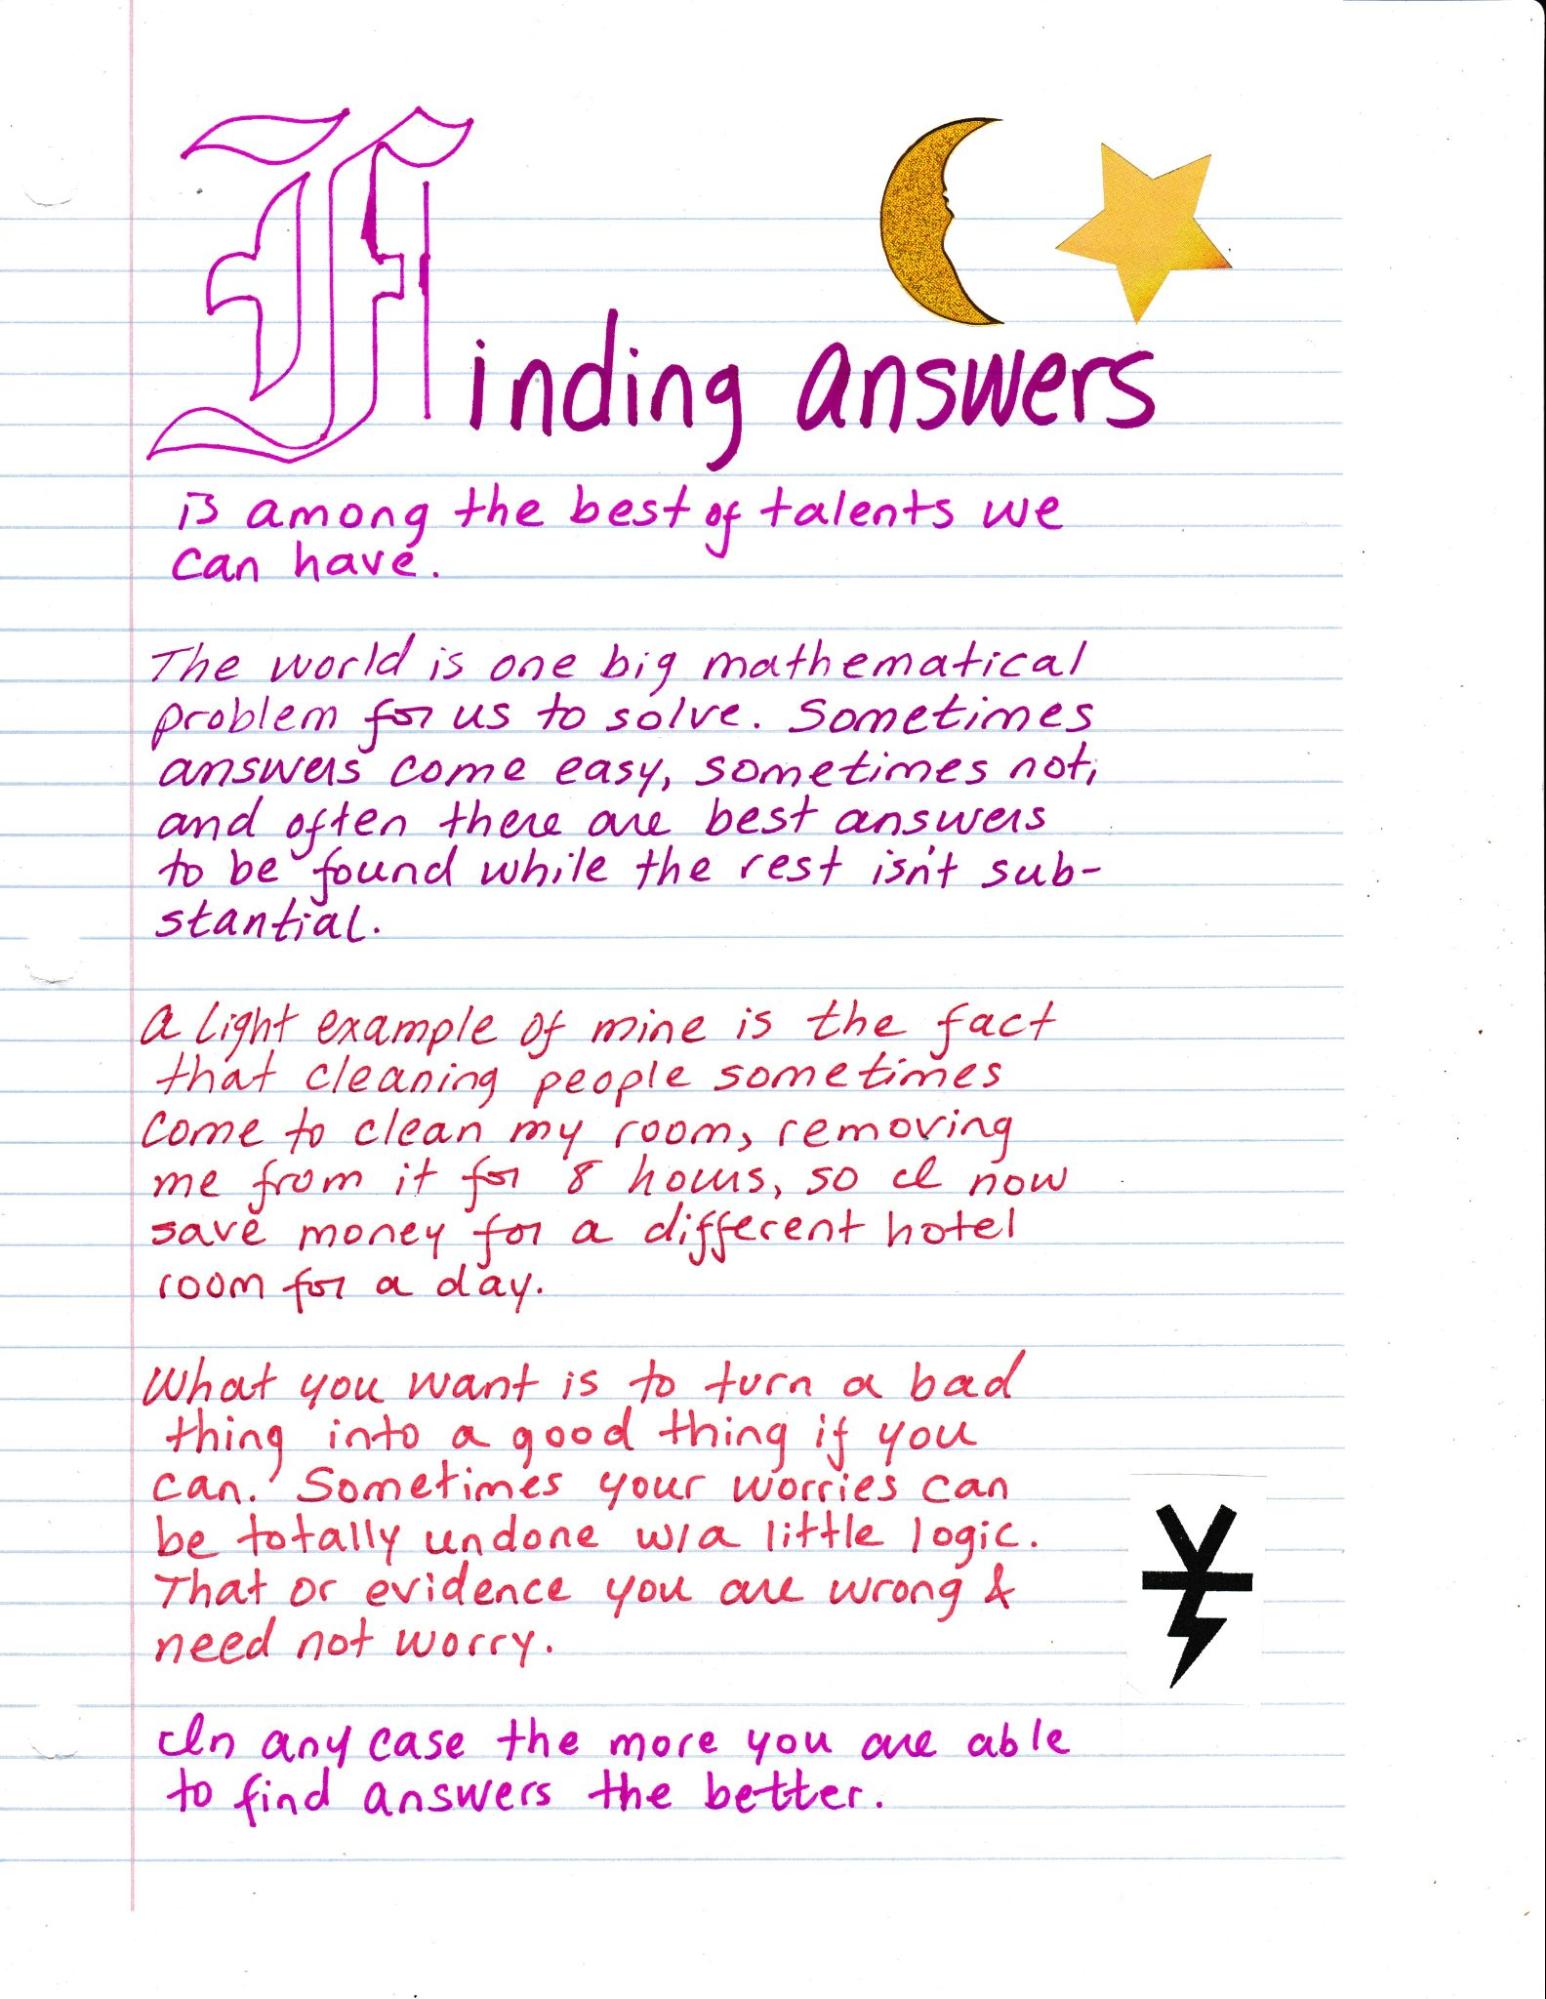 Finding answers
is among the best of talents we
can have.
The world is one big mathematical
problem for us to solve. Sometimes
answers come easy, sometimes not,
and often there are best answers
to be found while the rest isn't sub-
stantial.
A light example of mine is the fact
that cleaning people sometimes
come to clean my room, removing
me from it for 8 hours, so I now
save money for a different hotel
room for a day.
What you want is to turn a bad
thing into a good thing if you
can. Sometimes your worries can
be totally undone w/a little logic.
That or evidence you are wrong &
need not worry.
In any case the more you are able
to find answers the better.